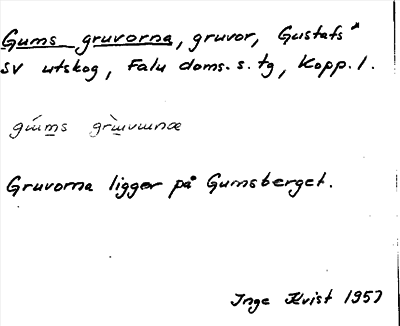 Gums gruvorna, gruvor, Gustafs*
SV utskog, Falu doms. s. tg, Kopp. l.
Gruvorna ligger på Gumsberget.
Inge Kvist 1957